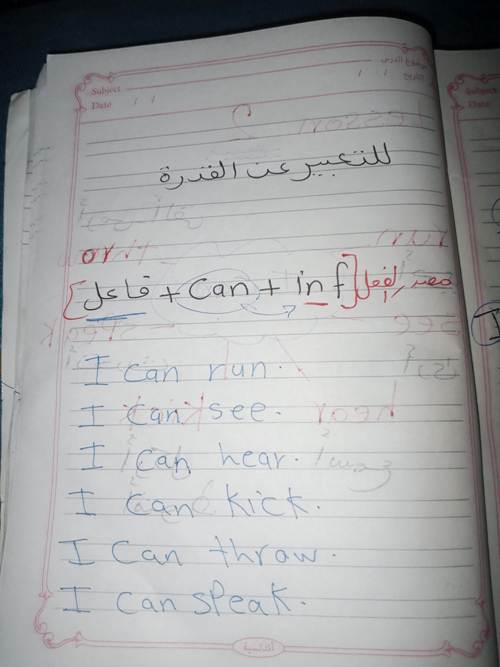 Subject
Date / /
للتعبير عن القدرة
[فاعل + can + inf] مصدر الفعل
I can run.
I can see.
I can hear.
I can kick.
I can throw.
I can speak.